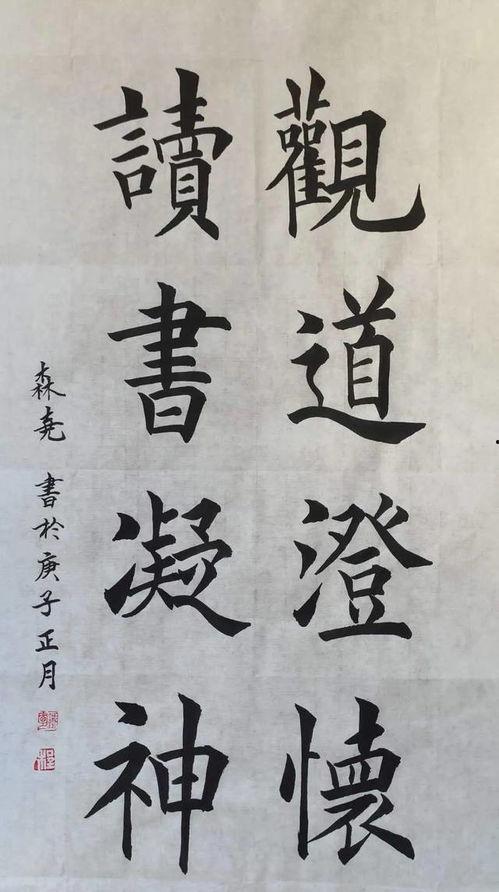 觀道澄懷
讀書凝神
森堯 書於庚子正月